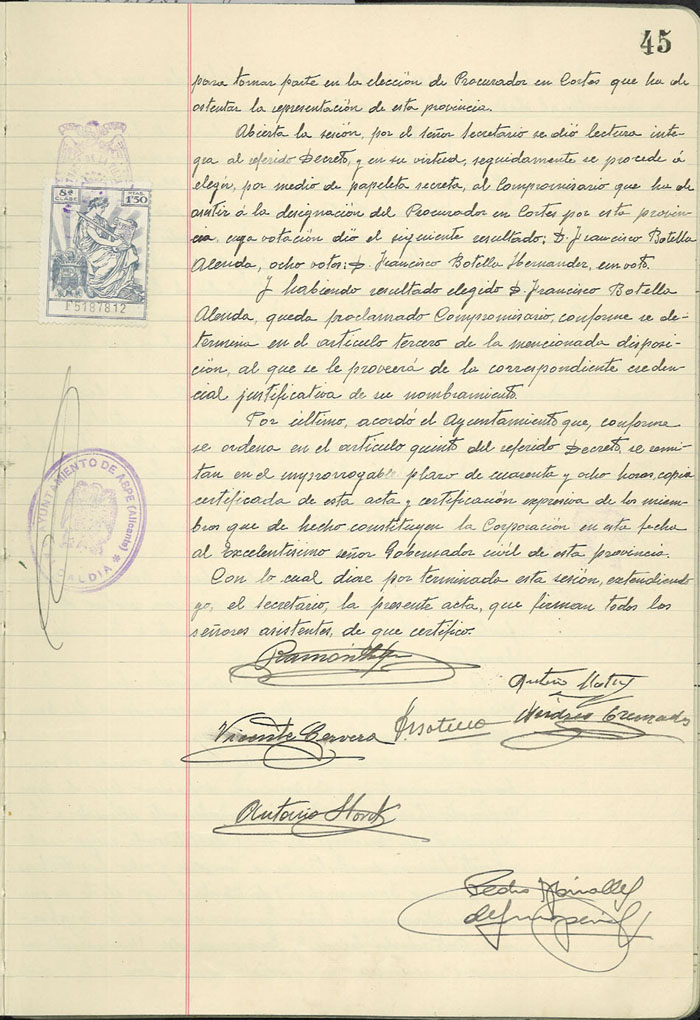 45
para tomar parte en la elección de Procurador en Cortes que ha de
ostentar la representación de esta provincia.
Abierta la sesión, por el señor Secretario se dió lectura inte-
gra al referido Decreto, y en su virtud, seguidamente se procede á
elegir, por medio de papeleta secreta, al Compromisario que ha de
asistir á la designación del Procurador en Cortes por esta provin-
cia, cuya votación dió el siguiente resultado: D. Francisco Botella
Alenda, ocho votos; D. Francisco Botella Hernander, un voto.
Y habiendo resultado elegido D. Francisco Botella
Alenda, queda proclamado Compromisario, conforme se de-
termina en el artículo tercero de la mencionada disposi-
ción, al que se le proveerá de la correspondiente creden-
cial justificativa de su nombramiento.
Por último, acordó el Ayuntamiento que, conforme
se ordena en el artículo quinto del referido Decreto, se remi-
tan en el improrrogable plazo de cuarenta y ocho horas, copia
certificada de esta acta y certificación expresiva de los miem-
bros que de hecho constituyen la Corporación en esta fecha
al Excelentísimo señor Gobernador civil de esta provincia.
Con lo cual diose por terminada esta sesión, extendiendo
yo, el secretario, la presente acta, que firman todos los
señores asistentes, de que certifico.
8ª CLASE
PTAS. 1'50
F5187812
AYUNTAMIENTO DE ASPE (Alicante)
ALCALDIA
Ramón
Antonio
Vicente Cervera
Andrés Cremades
Antonio
Pedro